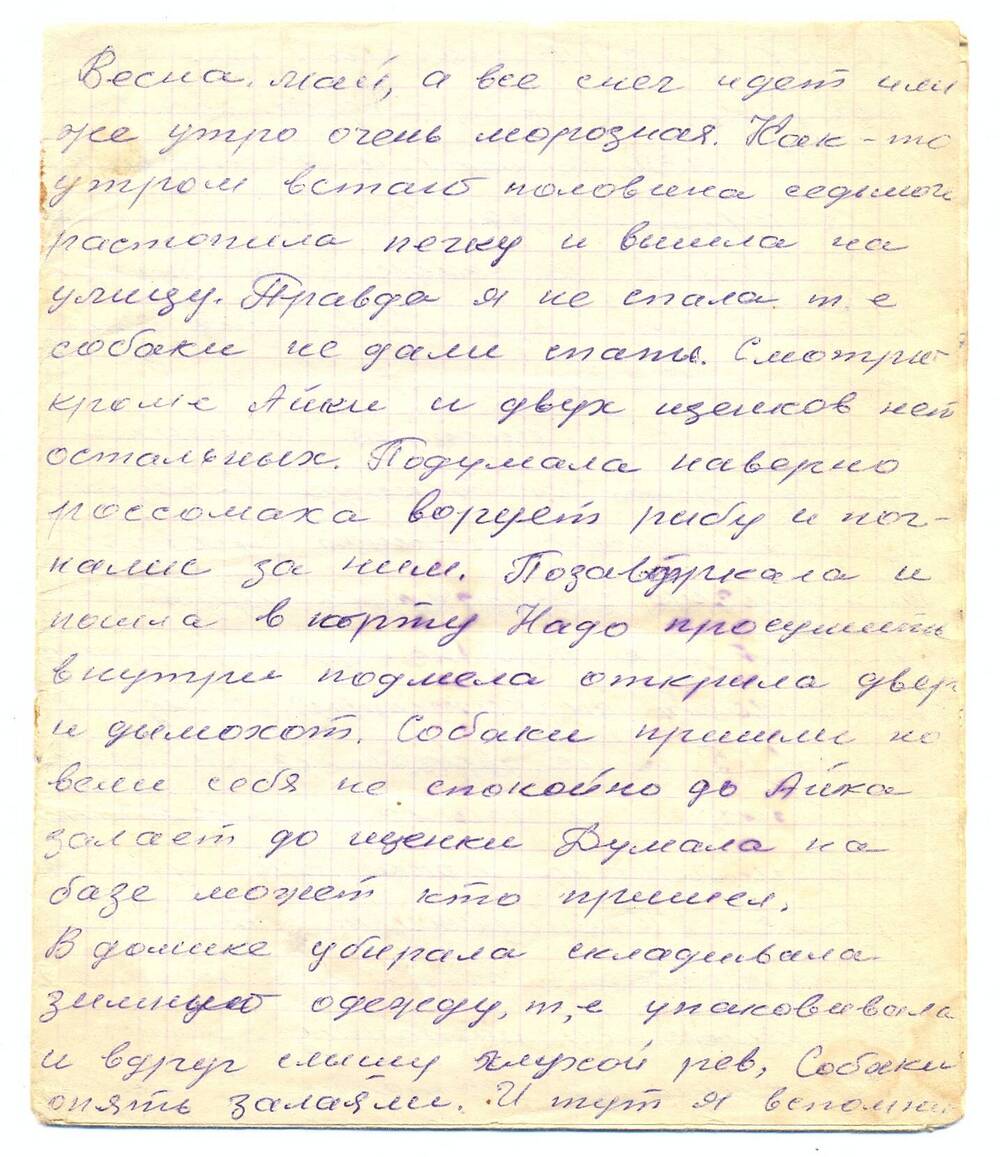 Весна. май, а все снег идет или
же утро очень морозная. Как-то
утром встаю половина седьмой
растопила печку и вышла на
улицу. Правда я не спала т.е
собаки не дали спать. Смотрю
кроме Айки и двух щенков нет
остальных. Подумала наверно
россомаха ворует рыбу и пог-
нались за ним. Позавтркала и
пошла в юрту Надо просушить
внутри подмела открила двер
и дымохот. Собаки пришли но
вели себя не спокойно до Айка
залает до щенки Думала на
базе может кто пришел.
В домике убирала складивала
зимную одежду, т,е упаковивала
и вдруг слышу глухой рев, Собаки
опять залаяли. И тут я вспомни